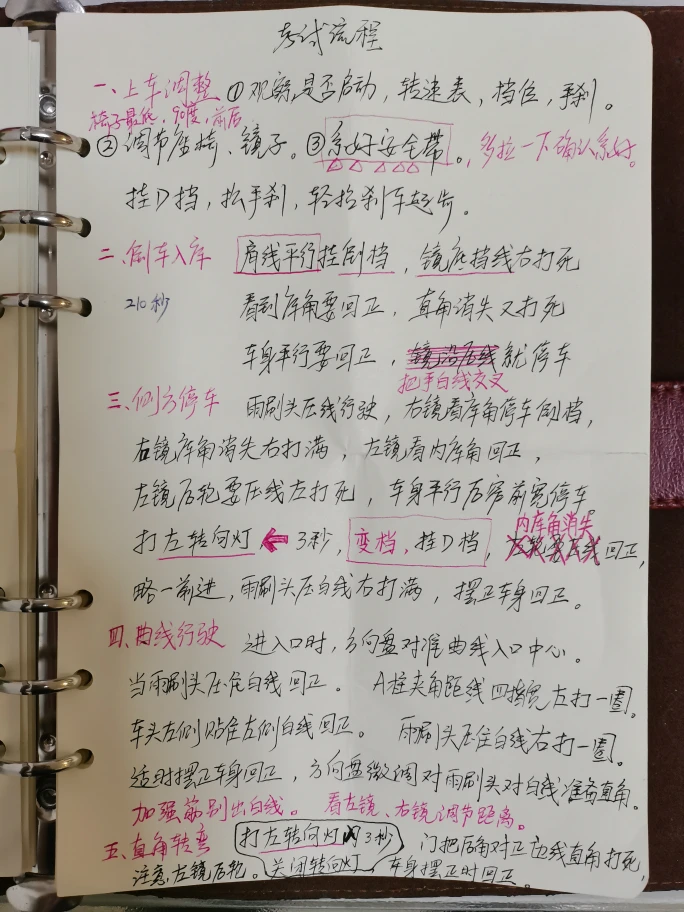 考试流程
一、上车调整 ①观察是否启动，转速表，挡位，手刹。
椅子最低，90度，前后
②调节座椅、镜子。③系好安全带。，多拉一下确认系好。
挂D挡，松手刹，轻抬刹车起步。
二、倒车入库 肩线平行挂倒档，镜底挡线右打死
210秒 看到库角要回正，直角消失又打死
车身平行要回正，就停车
把手白线交叉
三、侧方停车 雨刷头压线行驶，右镜看库角停车倒档，
右镜库角消失右打满，左镜看内库角回正，
左镜后轮要压线左打死，车身平行后窄前宽停车
内库角消失
打左转向灯 ← 3秒，变档，挂D档，回正，
略一前进，雨刷头压白线右打满，摆正车身回正。
四、曲线行驶 进入口时，方向盘对准曲线入口中心。
当雨刷头压住白线回正。 A柱夹角距线四指宽左打一圈。
车头左侧贴住左侧白线回正。 雨刷头压住白线右打一圈。
适时摆正车身回正，方向盘微调对雨刷头对白线准备直角。
加强筋别出白线。 看左镜、右镜调节距离。
五、直角转弯 打左转向灯 3秒 门把后角对正边线直角打死，
注意左镜后轮。关闭转向灯，车身摆正时回正。